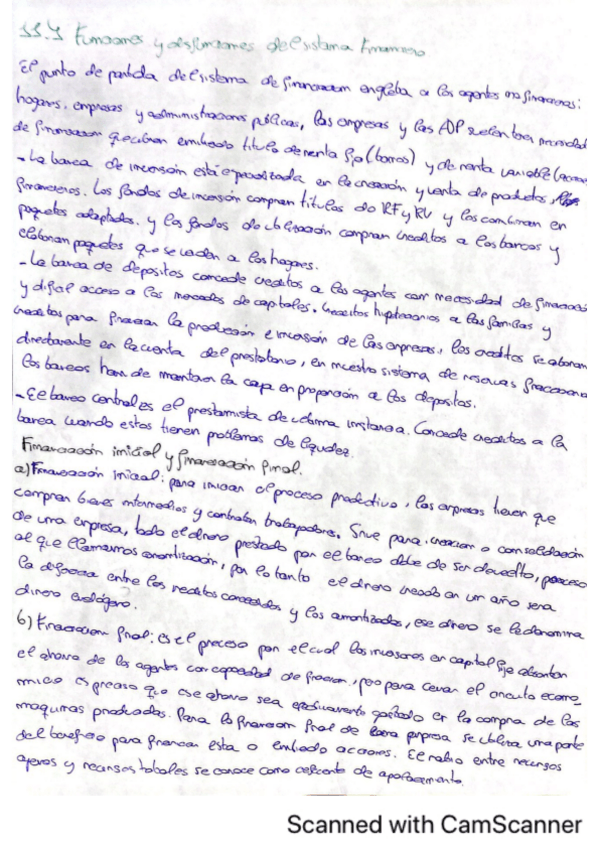 11.4 Funciones y disfunciones del sistema financiero
El punto de partida del sistema de financiacion engloba a los agentes no financieros:
hogares, empresas y administraciones públicas, las empresas y las AAPP suelen tener necesidad
de financiacion que cubren emitiendo titulo de renta fija (bonos) y de renta variable (acciones
- La banca de inversión está especializada en la creación y venta de productos
financieros. Los fondos de inversión compran titulos de RF y RV y los combinan en
paquetes adaptados, y los fondos de titulización compran creditos a los bancos y
elaboran paquetes que se venden a los hogares.
- La banca de depositos concede creditos a los agentes con necesidad de financiación
y dificil acceso a los mercados de capitales. creditos hipotecarios a las familias y
creditos para financiar la producción e inversión de las empresas, los creditos se abonan
directamente en la cuenta del prestatario, en nuestro sistema de reservas fraccionario
los bancos han de mantener la caja en proporción a los depositos.
- El banco central es el prestamista de ultima instancia. Concede creditos a la
banca cuando estos tienen problemas de liquidez.
Financiación inicial y financiación final.
a) Financiación inicial: para iniciar el proceso productivo, las empresas tienen que
comprar bienes intermedios y contratar trabajadores. Sirve para creación o consolidación
de una empresa, todo el dinero prestado por el banco debe de ser devuelto, proceso
al que llamamos amortización, por lo tanto el dinero creado en un año sera
la diferencia entre los creditos concedidos y los amortizados, ese dinero se le denomina
dinero endógeno.
b) Financiacion final: es el proceso por el cual los inversores en capital fijo absorben
el ahorro de los agentes con capacidad de financiar, pero para cerrar el circuito econo-
mico es preciso que ese ahorro sea efectivamente gastado en la compra de las
maquinas producidas. Para la financiacion final de una empresa se utiliza una parte
del beneficio para financiar esta o emitiendo acciones. El ratio entre recursos
ajenos y recursos totales se conoce como coeficiente de apalancamiento.
Scanned with CamScanner